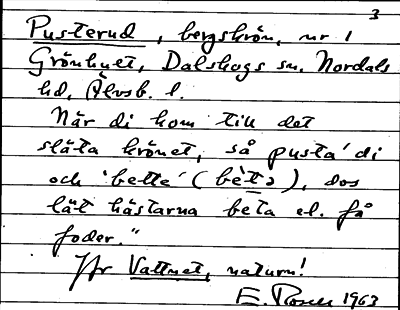 3
Pusterud, bergskrön, nr 1
Grönhuet, Dalskogs sn. Nordals
hd, Älvsb. l.
När di kom till det
släta krönet, så pusta' di
och 'bette' (bètə), dvs
lät hästarna beta el. få
foder."
Jfr Vattnet, naturn!
E. Rosell 1963